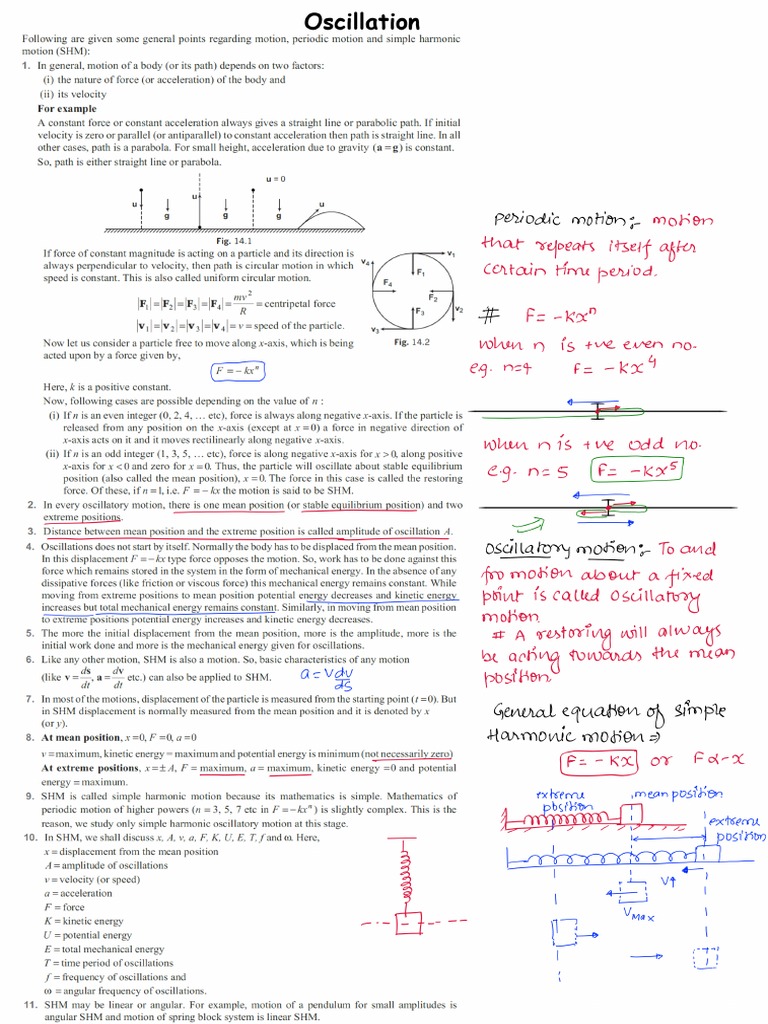 Oscillation
Following are given some general points regarding motion, periodic motion and simple harmonic
motion (SHM):
1. In general, motion of a body (or its path) depends on two factors:
(i) the nature of force (or acceleration) of the body and
(ii) its velocity
For example
A constant force or constant acceleration always gives a straight line or parabolic path. If initial
velocity is zero or parallel (or antiparallel) to constant acceleration then path is straight line. In all
other cases, path is a parabola. For small height, acceleration due to gravity (a = g) is constant.
So, path is either straight line or parabola.
u = 0
u
u
u
g
g
g
Fig. 14.1
If force of constant magnitude is acting on a particle and its direction is
always perpendicular to velocity, then path is circular motion in which
speed is constant. This is also called uniform circular motion.
|F₁| = |F₂| = |F₃| = |F₄| = mv²/R = centripetal force
|v₁| = |v₂| = |v₃| = |v₄| = v = speed of the particle.
v₄
v₁
F₁
F₄
F₂
F₃
v₂
v₃
Fig. 14.2
Now let us consider a particle free to move along x-axis, which is being
acted upon by a force given by,
F = – kxⁿ
Here, k is a positive constant.
Now, following cases are possible depending on the value of n :
(i) If n is an even integer (0, 2, 4, … etc), force is always along negative x-axis. If the particle is
released from any position on the x-axis (except at x = 0) a force in negative direction of
x-axis acts on it and it moves rectilinearly along negative x-axis.
(ii) If n is an odd integer (1, 3, 5, … etc), force is along negative x-axis for x > 0, along positive
x-axis for x < 0 and zero for x = 0. Thus, the particle will oscillate about stable equilibrium
position (also called the mean position), x = 0. The force in this case is called the restoring
force. Of these, if n = 1, i.e. F = – kx the motion is said to be SHM.
2. In every oscillatory motion, there is one mean position (or stable equilibrium position) and two
extreme positions.
3. Distance between mean position and the extreme position is called amplitude of oscillation A.
4. Oscillations does not start by itself. Normally the body has to be displaced from the mean position.
In this displacement F = – kx type force opposes the motion. So, work has to be done against this
force which remains stored in the system in the form of mechanical energy. In the absence of any
dissipative forces (like friction or viscous force) this mechanical energy remains constant. While
moving from extreme positions to mean position potential energy decreases and kinetic energy
increases but total mechanical energy remains constant. Similarly, in moving from mean position
to extreme positions potential energy increases and kinetic energy decreases.
5. The more the initial displacement from the mean position, more is the amplitude, more is the
initial work done and more is the mechanical energy given for oscillations.
6. Like any other motion, SHM is also a motion. So, basic characteristics of any motion
(like v = ds/dt, a = dv/dt etc.) can also be applied to SHM.
a = v dv/ds
7. In most of the motions, displacement of the particle is measured from the starting point (t = 0). But
in SHM displacement is normally measured from the mean position and it is denoted by x
(or y).
8. At mean position, x = 0, F = 0, a = 0
v = maximum, kinetic energy = maximum and potential energy is minimum (not necessarily zero)
At extreme positions, x = ± A, F = maximum, a = maximum, kinetic energy = 0 and potential
energy = maximum.
9. SHM is called simple harmonic motion because its mathematics is simple. Mathematics of
periodic motion of higher powers (n = 3, 5, 7 etc in F = – kxⁿ) is slightly complex. This is the
reason, we study only simple harmonic oscillatory motion at this stage.
10. In SHM, we shall discuss x, A, v, a, F, K, U, E, T, f and ω. Here,
x = displacement from the mean position
A = amplitude of oscillations
v = velocity (or speed)
a = acceleration
F = force
K = kinetic energy
U = potential energy
E = total mechanical energy
T = time period of oscillations
f = frequency of oscillations and
ω = angular frequency of oscillations.
11. SHM may be linear or angular. For example, motion of a pendulum for small amplitudes is
angular SHM and motion of spring block system is linear SHM.
Periodic motion:- motion
that repeats itself after
certain time period.
# F = -kxⁿ
when n is +ve even no.
eg. n=4 F = -kx⁴
when n is +ve odd no.
e.g. n=5 F = -kx⁵
Oscillatory motion:- To and
fro motion about a fixed
point is called Oscillatory
motion.
# A restoring will always
be acting towards the mean
position.
General equation of simple
Harmonic motion ⇒
F = -kx or F∝-x
extreme
position
mean position
extreme
position
V↑
VMax